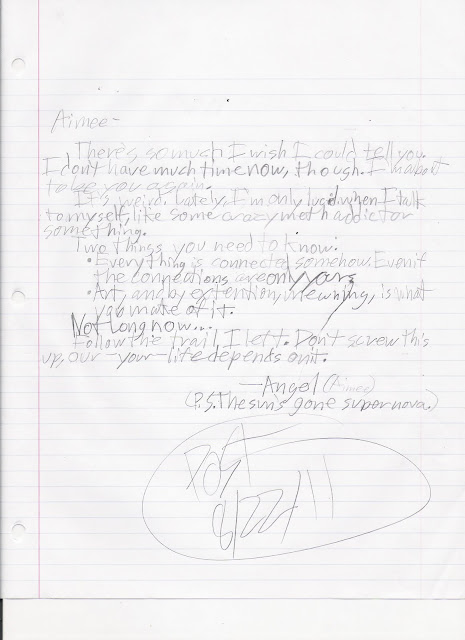 Aimee-
There's so much I wish I could tell you.
I don't have much time now, though. I'm about
to be you again.
It's weird. Lately, I'm only lucid when I talk
to myself, like some crazy meth addict or
something.
Two things you need to know:
• Everything is connected somehow. Even if
the connections are only yours.
• Art, and by extention, meaning, is what
you make of it.
Not long now...
Follow the trail I left. Don't screw this
up, our-your-life depends on it.
-Angel (Aimee)
(P.S. The sun's gone supernova.)
Post
8/22/11